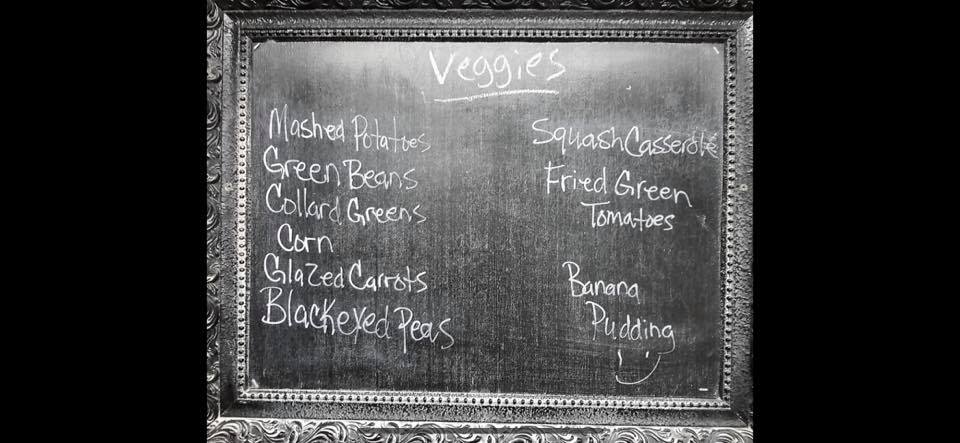 Veggies
Mashed Potatoes
Green Beans
Collard Greens
Corn
Glazed Carrots
Blackeyed Peas
Squash Casserole
Fried Green
Tomatoes
Banana
Pudding